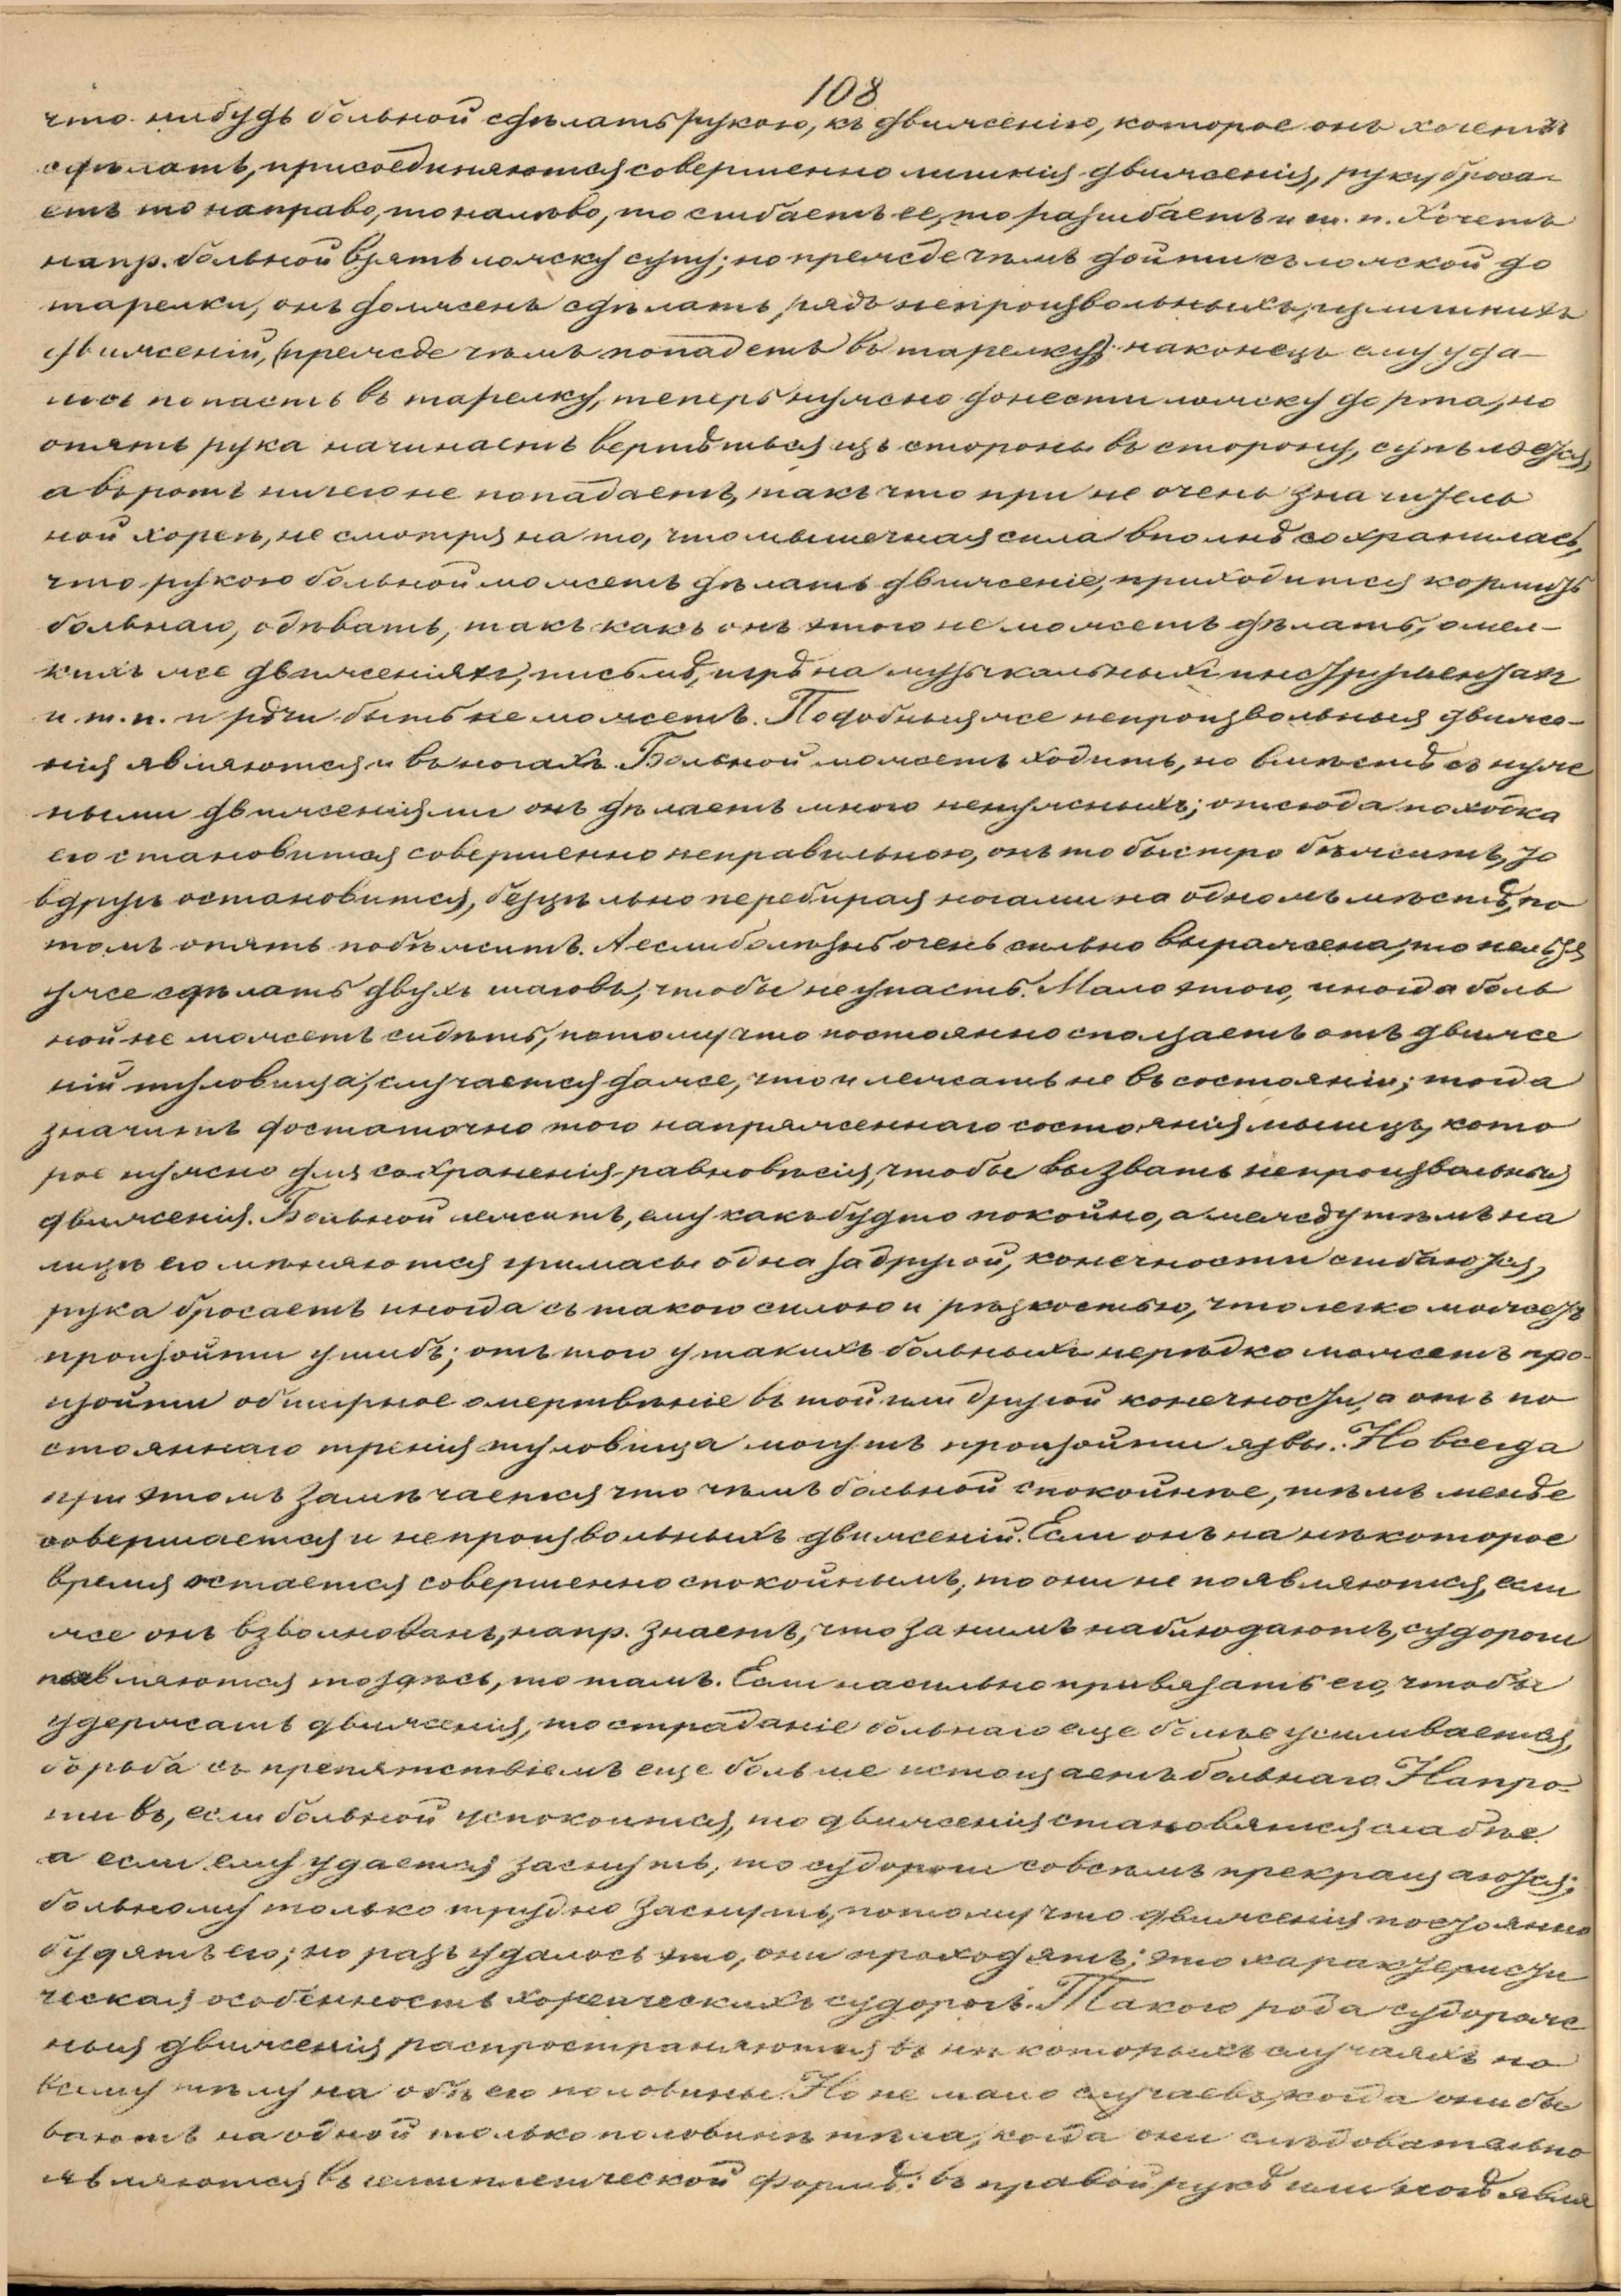 108
что нибудь больной сдѣлать рукою, къ движенію, которое онъ хочетъ
сдѣлать, присоединяются совершенно лишнія движенія, руку броса-
етъ то направо, то налѣво, то сгибаетъ ее, то разгибаетъ и т. п. Хочетъ
напр. больной взять ложку супу; но прежде чѣмъ дойти съ ложкой до
тарелки, онъ долженъ сдѣлать рядъ непроизвольныхъ, излишнихъ
движеній, (прежде чѣмъ попадетъ въ тарелку) наконецъ ему уда-
лось попасть въ тарелку, теперь нужно донести ложку до рта, но
опять рука начинаетъ вертѣться изъ стороны въ сторону, супъ льется,
а въ ротъ ничего не попадаетъ, такъ что при не очень значитель
ной хореѣ, не смотря на то, что мышечная сила вполнѣ сохранилась,
что рукою больной можетъ дѣлать движеніе, приходится кормить
больнаго, одѣвать, такъ какъ онъ этого не можетъ дѣлать, о мел-
кихъ же движеніяхъ, письмѣ, игрѣ на музыкальныхъ инструментахъ
и т. п. и рѣчи быть не можетъ. Подобныя же непроизвольныя движе-
нія являются и въ ногахъ. Больной можетъ ходить, но вмѣстѣ съ нуж
ными движеніями онъ дѣлаетъ много ненужныхъ; отсюда походка
его становится совершенно неправильною, онъ то быстро бѣжитъ, то
вдругъ остановится, безцѣльно перебирая ногами на одномъ мѣстѣ, по
томъ опять побѣжитъ. А если болѣзнь очень сильно выражена, то нельзя
уже сдѣлать двухъ шаговъ, чтобы не упасть. Мало этого, иногда боль
ной не можетъ сидѣть, потому что постоянно сползаетъ отъ движе
ній туловища, случается даже, что и лежать не въ состояніи; тогда
значитъ достаточно того напряженнаго состоянія мышцъ, кото
рое нужно для сохраненія равновѣсія, чтобы вызвать непроизвольныя
движенія. Больной лежитъ, ему какъ будто покойно, а между тѣмъ на
лицѣ его мѣняются гримасы одна за другой, конечности сгибаются,
рука бросаетъ иногда съ такою силою и рѣзкостью, что легко можетъ
произойти ушибъ; отъ того у такихъ больныхъ нерѣдко можетъ про-
изойти обширное омертвѣніе въ той или другой конечности, а отъ по
стояннаго тренія туловища могутъ произойти язвы. Но всегда
при этомъ замѣчается что чѣмъ больной спокойнѣе, тѣмъ менѣе
совершается и непроизвольныхъ движеній. Если онъ на нѣкоторое
время остается совершенно спокойнымъ, то они не появляются, если
же онъ взволнованъ, напр. знаетъ, что за нимъ наблюдаютъ, судороги
появляются то здѣсь, то тамъ. Если насильно привязать его, чтобы
удержать движенія, то страданіе больнаго еще болѣе усиливается,
борьба съ препятствіемъ еще больше истощаетъ больнаго. Напро-
тивъ, если больной успокоится, то движенія становятся слабѣе
а если ему удается заснуть, то судороги совсѣмъ прекращаются;
больному только трудно заснуть, потому что движенія постоянно
будятъ его; но разъ удалось это, они проходятъ; это характеристи
ческая особенность хореическихъ судорогъ. Такого рода судорож
ныя движенія распространяются въ нѣкоторыхъ случаяхъ по
всему тѣлу на обѣ его половины. Но не мало случаевъ, когда они бы
ваютъ на одной только половинѣ тѣла, когда они слѣдовательно
являются въ гемиплегической формѣ: въ правой рукѣ или ногѣ явля